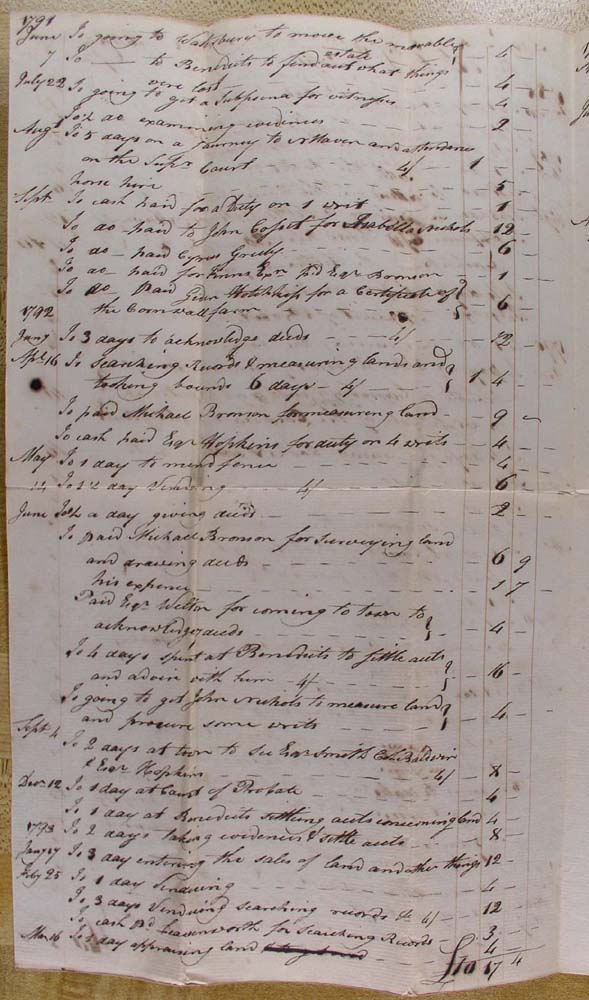 1791
June To going to Watsbury to move the movable estate - 4 -
7 To — to Benedicts to find out what things
were lost - 4 -
July 22 To going to get a Subpoena for witnesses - 4 -
To ½ do examining evidences - 2 -
Augt To 5 days on a Journey to N Haven and attendance
on the Supr Court 4/ 1 -
horse hire - 5 -
Sept To cash paid for a Duty on 1 writ - 1 -
To do paid to John Coset for Arabella Nichols - 12 -
To do - paid Cyrus - 6 -
To do - paid for Esqr Bronson - 1 -
To do paid Hotchkiss for a Certificate of
the Cornwall farm - 6 -
1792
Jany To 3 days to acknowledge deeds 4/ - 12 -
Apl 16 To Searching Records & measuring lands and
taching bounds 6 days - 4/ 1 4 -
To paid Michael Bronson for measuring land - 9 -
To cash paid Esqr Hopkins for duty on 4 writs - 4 -
May To 1 day to mend fence - 4 -
14 To 1 ½ day Vinduing 4/ 6 -
June To ½ a day giving deeds - 2 -
To paid Michael Bronson for Surveying land
and drawing deeds - 6 9
his expence - 1 7 -
Paid Esqr Welton for coming to town to
acknowledge deeds - 4 -
To 4 days spint at Benedicts to settle acts
and advise with him - 4/ - 16 -
To going to get John Nichols to measure land
and procure some writs - 4 -
Sept 4 To 2 days at town to see Esqr Smith Col Baldwin
& Esqr Hopkins 4/ - 8 -
Decr 12 To 1 day at Court of Probate - 4
To 1 day at Benedicts settling acts concerning land 4 -
1793 To 2 days taking evidences & settle acts - 8 -
Jany 17 To 3 day entering the sales of land and other things 12 -
Feby 25 To 1 day Vinduing - 4 -
To 3 days Vinduing searching records &c 4/ - 12
To cash Pd Leavenworth for Searching Records - 3 -
Mar 16 To 1 day appraising land - 4
£10 17 4